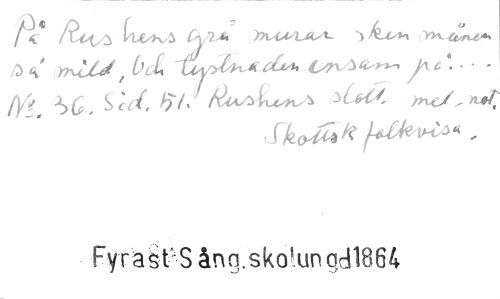 På Rushens grå murar sken månen
så mild, Och tystnaden ensam på....
No. 36. Sid. 51. Rushens slott. mel. not.
Skottsk folkvisa.
Fyrast Sång.skolungd1864